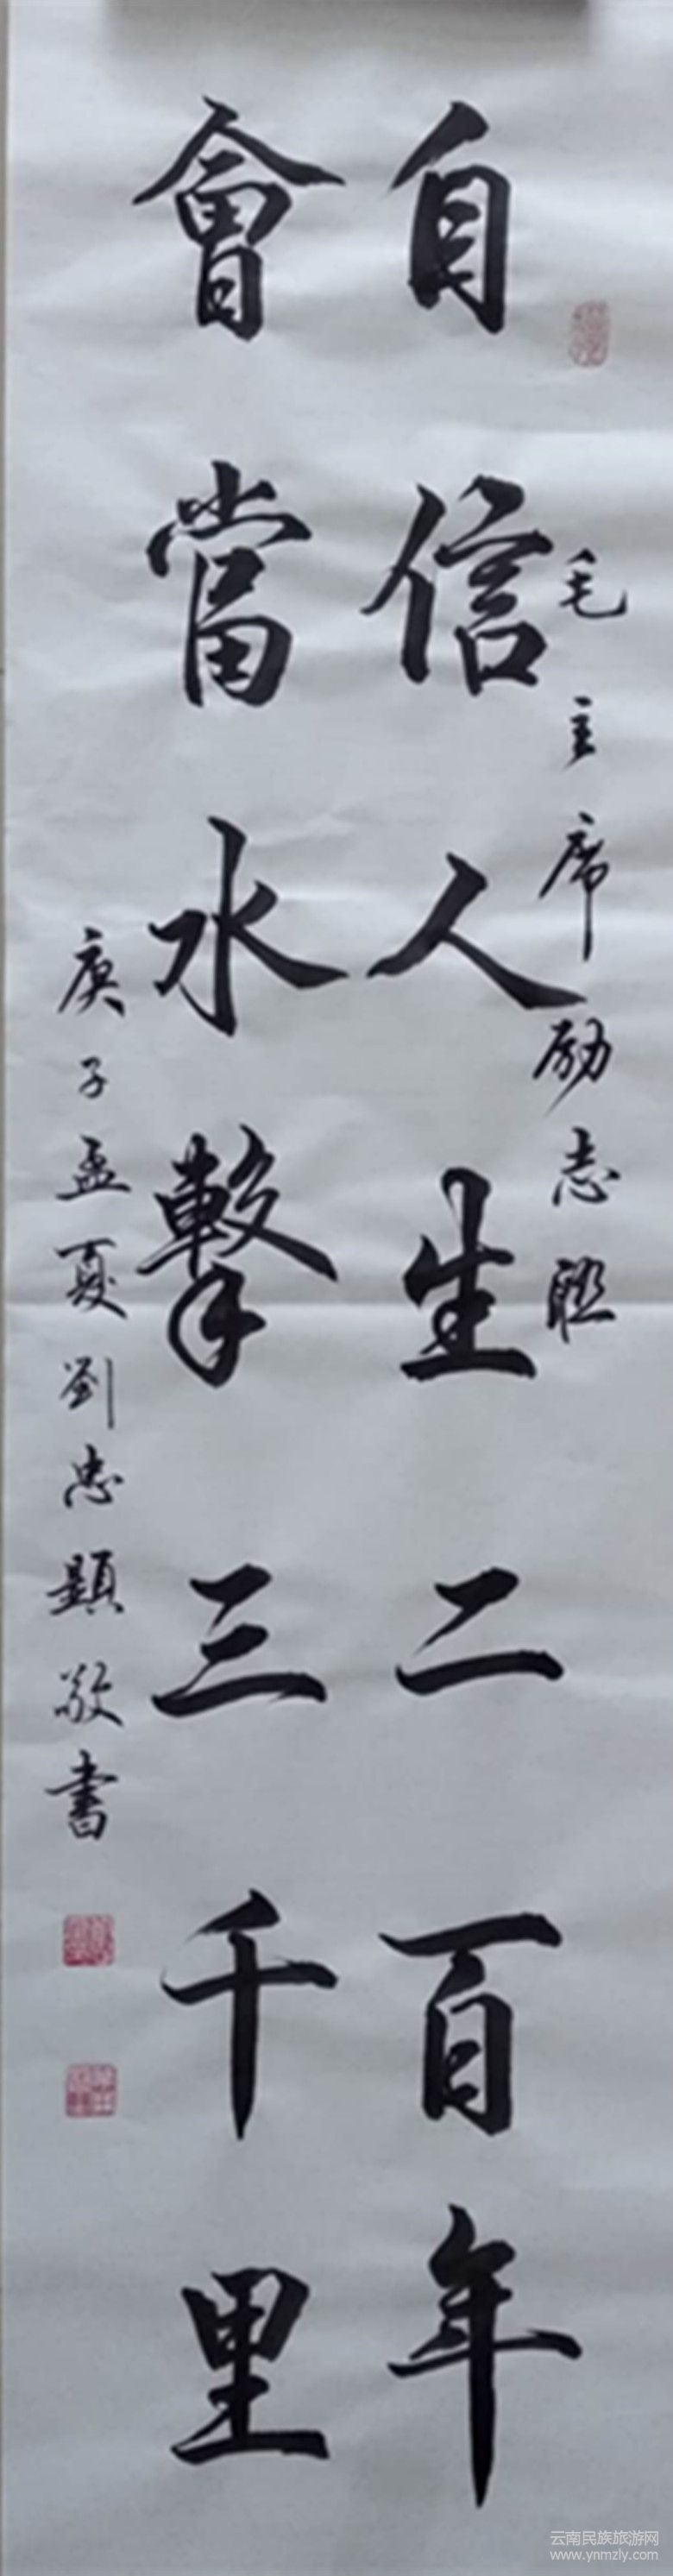 毛主席励志联
自信人生二百年
會當水擊三千里
庚子孟夏劉忠顯敬書
云南民族旅游网
www.ynmzly.com